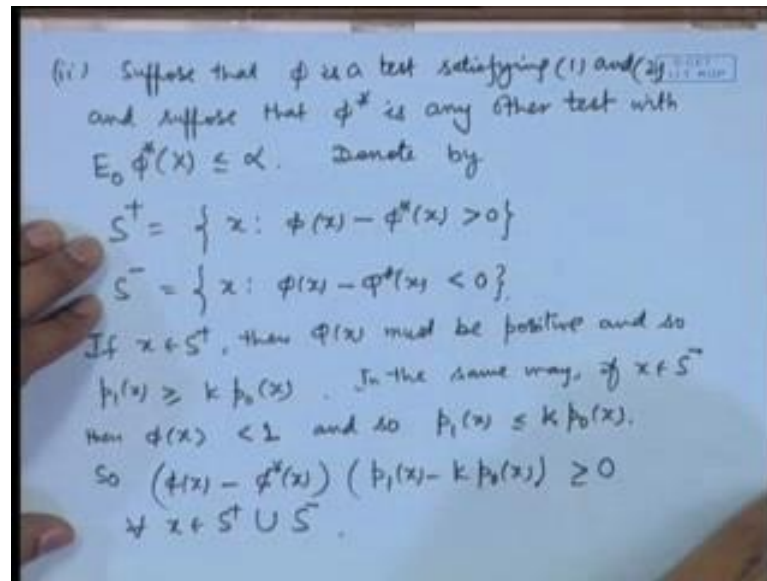 (ii) Suppose that ϕ is a test satisfying (1) and (2)
and suppose that ϕ* is any other test with
E₀ ϕ*(X) ≤ α. Denote by
S⁺ = { x : ϕ(x) − ϕ*(x) > 0}
S⁻ = { x : ϕ(x) − ϕ*(x) < 0}.
If x ∈ S⁺, then ϕ(x) must be positive and so
p₁(x) ≥ k p₀(x). In the same way, if x ∈ S⁻
then ϕ(x) < 1 and so p₁(x) ≤ k p₀(x).
So (ϕ(x) − ϕ*(x)) (p₁(x) − k p₀(x)) ≥ 0
∀ x ∈ S⁺ ∪ S⁻.